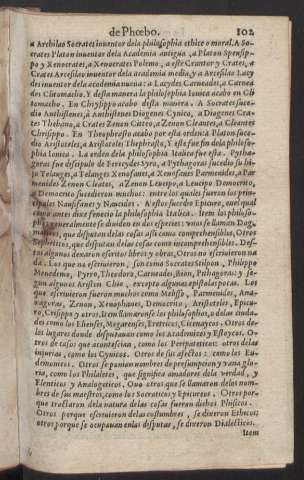 de Phœbo. 102
a Archilao Socrates inventor dela philosophia ethica o moral. A So-
crates Platon inventor dela Academia antigua, a Platon Speusip-
po y Xenocrates, a Xenocrates Polemo, a este Crantor y Crates, a
Crates Arcesilao inventor dela academia media, y a Arcesilao Lacy
des inventor dela academia nueva: a Lacydes Carneades, a Carnea
des Clitomacho. Y desta manera la philosophia Ionica acabo en Cli
tomacho. En Chrysippo acabo desta manera. A Socrates suce-
dio Antisthenes, a Antisthenes Diogenes Cynico, a Diogenes Cra-
tes Thebano, a Crates Zenon Citico, a Zenon Cleantes, a Cleantes
Chrisippo. En Theophrasto acabo por esta orden: a Platon suce-
dio Aristoteles, a Aristoteles Thephrasto, Y este fue fin dela philoso-
phia Ionica. La orden dela philosophia Italica fue esta. Pytha-
goras fue discipulo de Ferecydes Syro, a Pythagoras sucedio su hi-
jo Telauges, a Telauges Xenofanes, a Xenofanes Parmenides, a Par
menides Zenon Eleates, a Zenon Leucipo, a Leucipo Democrito,
a Democrito sucedieron muchos: entre los quales fueron los prin-
cipales Nausifanes y Naucides. A estos sucedio Epicuro, enel qual
como antes dixe fenecio la philosophia Italica. Item los philoso-
phos generalmente se dividen en dos especies: unos se llaman Dog-
maticos, que disputan delas cosas assi como comprehensibles, Otros
Ephecticos, que disputan delas cosas como incomprehensibles. Des-
tos algunos dexaron escritos libros y obras, Otros no escrivieron na
da. Los que no escrivieron, son como Socrates Stilpon, Philippo
Menedemo, Pyrro, Theodoro, Carneades, Bion, Pithagoras: y se-
gun algunos Ariston Chio, excepto algunas epistolas pocas. Los
que escrivieron fueron muchos como Melisso, Parmenides, Ana-
xagoras, Zenon, Xenophanes, Democrito, Aristoteles, Epicu-
ro, Crisippo y otros. Item llamaronse los philosophos, o delas ciuda-
des como los Elienses, Megarenses, Eretricos, Cireneycos. Otros de-
los lugares donde disputavan como los Academicos y Estoycos. O-
tros de casos que acontescian, como los Peripateticos: otros delas
injurias, como los Cynicos. Otros de sus afectos: como los Eu-
demonicos. Otros se ponian nombres de presumpcion y vana glo-
ria, como los Philaletes, que significa amadores dela verdad, y
Elenticos y Analogeticos. Otros que se llamaron delos nom-
bres de sus maestros, como los Socraticos y Epicureos. Otros por-
que tractaron dela natura delas cosas fueron dichos Phisicos.
Otros porque escrivieron delas costumbres, se dixeron Ethicos:
otros porque se ocupavan enlas disputas, se dixeron Dialecticos.
Item